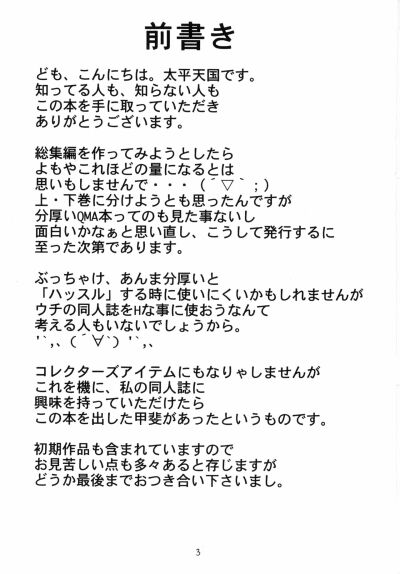 前書き
ども、こんにちは。太平天国です。
知ってる人も、知らない人も
この本を手に取っていただき
ありがとうございます。
総集編を作ってみようとしたら
よもやこれほどの量になるとは
思いもしませんで・・・（´▽｀；）
上・下巻に分けようとも思ったんですが
分厚いQMA本ってのも見た事ないし
面白いかなぁと思い直し、こうして発行するに
至った次第であります。
ぶっちゃけ、あんま分厚いと
「ハッスル」する時に使いにくいかもしれませんが
ウチの同人誌をHな事に使おうなんて
考える人もいないでしょうから。
'`,、（´∀`）'`,、
コレクターズアイテムにもなりゃしませんが
これを機に、私の同人誌に
興味を持っていただけたら
この本を出した甲斐があったというものです。
初期作品も含まれていますので
お見苦しい点も多々あると存じますが
どうか最後までおつき合い下さいまし。
3